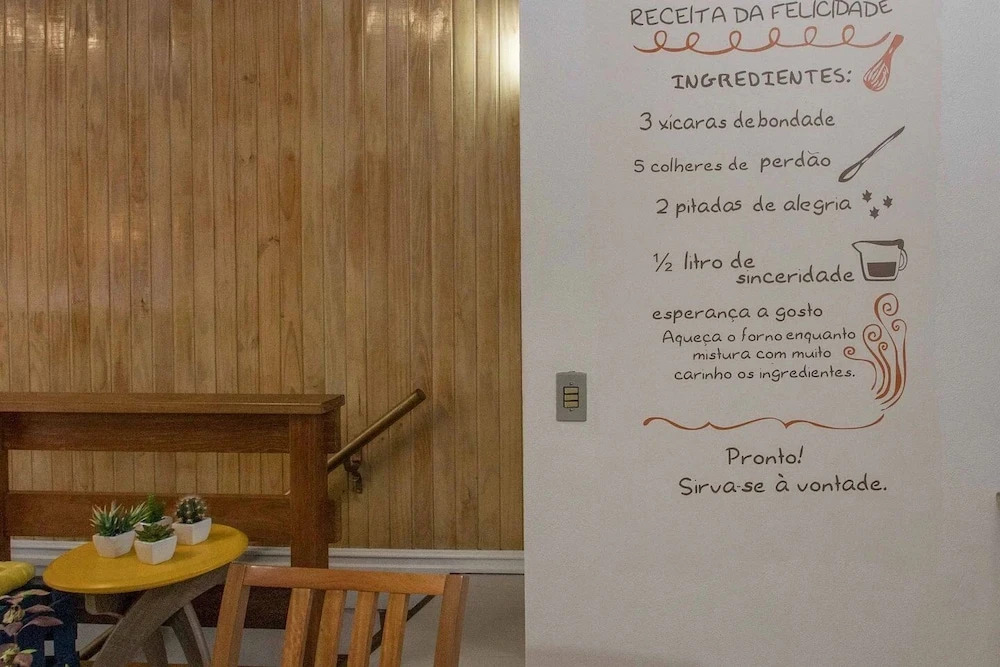 RECEITA DA FELICIDADE
INGREDIENTES:
3 xícaras de bondade
5 colheres de perdão
2 pitadas de alegria
½ litro de
sinceridade
esperança a gosto
Aqueça o forno enquanto
mistura com muito
carinho os ingredientes.
Pronto!
Sirva-se à vontade.